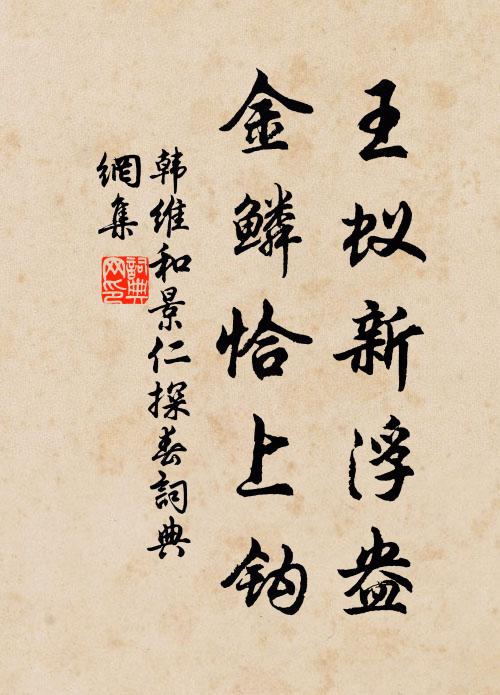 王蚁新浮盎
金鳞恰上钩
韩维和景仁探春詞典
網集
詞典
网印